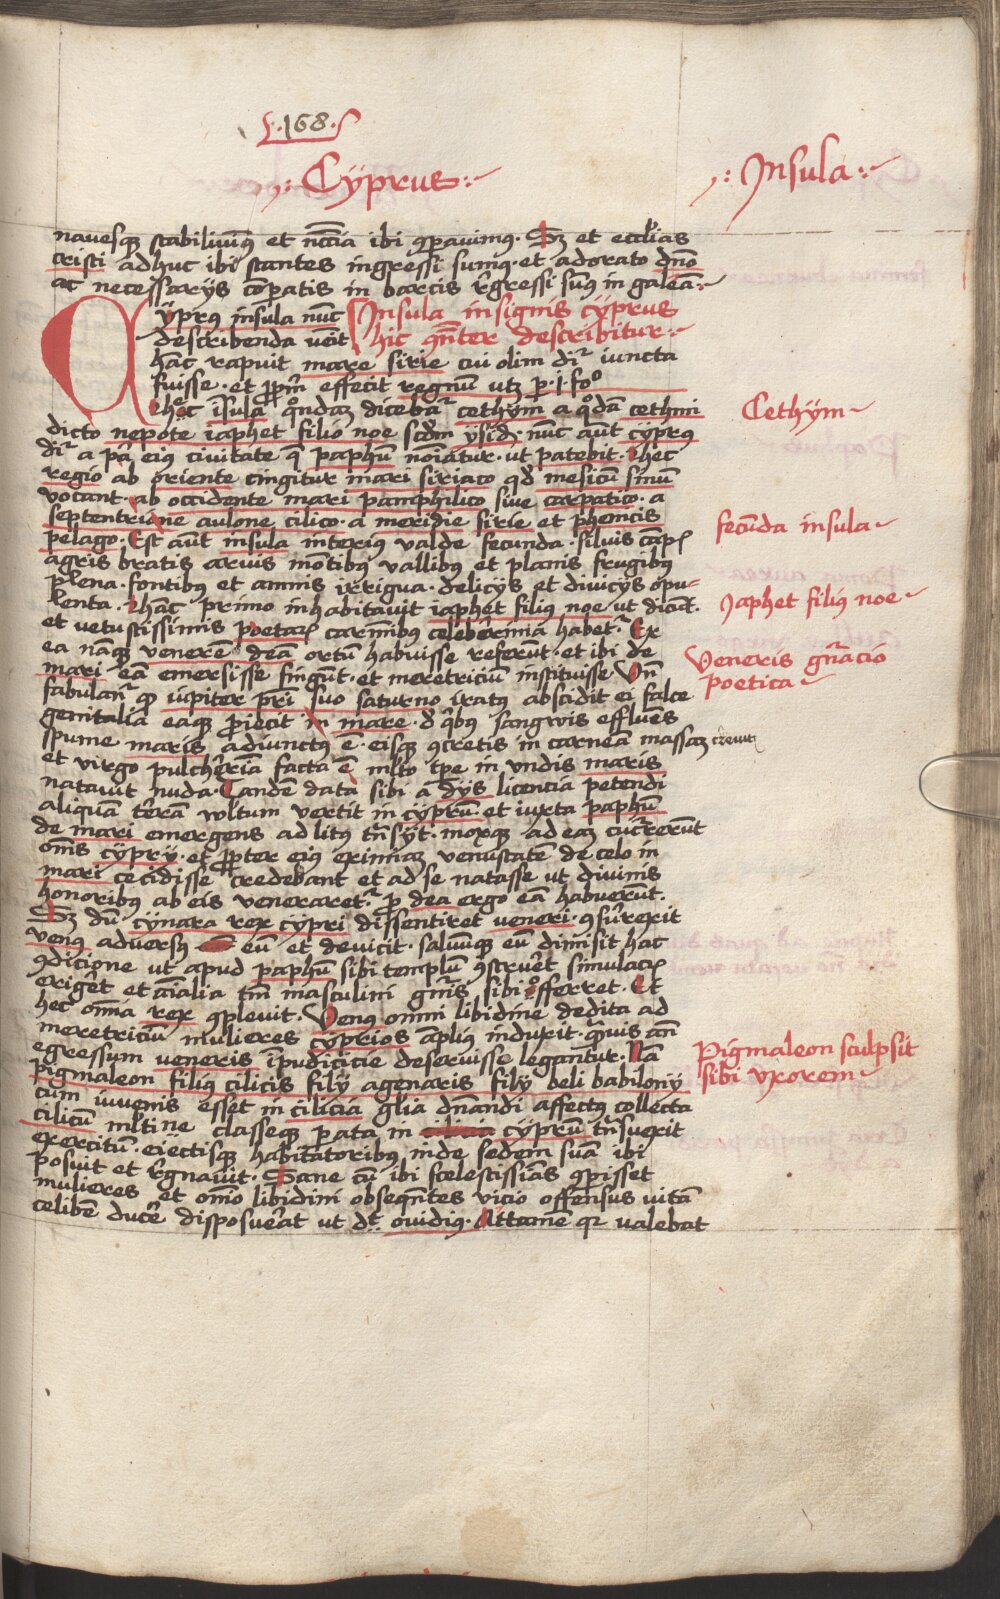 168
Cyprus
Insula
navesq stabilivimus et nccia ibi comparavimus. Sz et ecclias
cristi adhuc ibi stantes ingressi sumus. et adorato dno
ac necessarijs comparatis in barcis regressi sumus in galeam
Cyprus insula nunc Insula insignis cyprus
describenda venit hic generaliter describitur
hanc rapuit mare sirie cui olim dr iuncta
fuisse. et proprium effecit regnum utz p. 1. fo
hec insula quondam dicebatur cethym a quodam cethmi
Cethym
dicto nepote iaphet filio noe scdm ysid. nunc aut cyprus
dr a pa eius civitate que paphum noiatur. ut patebit. hec
regio ab oriente cingitur mari siriaco quod mesicum sinum
vocant. ab occidente mari pamphilico sive carpatico. a
septentrione aulone cilico. a meridie sirie et phenicis
fecunda insula
pelago. Est aut insula interius valde fecunda. silvis campis
agris bratis arvis montibus vallibus et planis frugibus
plena. fontibus et amnis irrigua. delicijs et divicijs opu-
lenta. hanc primo inhabitavit iaphet filius noe ut dicunt.
Japhet filius noe
et vetustissimis poetarum carminibus celeberrima habetur. Ex
ea namq venerem deam ortum habuisse referunt. et ibi de
Veneris gnracio
poetica
mari eam emersisse fingunt. et meretricium instituisse. Un
fabulantur quod iupiter patri suo saturno iratus abscidit ei falce
genitalia eaq proiecit in mare. de quibus sangwis effluens
spume maris adiunctus est. eisq concretis in carneam massam creuit
et virgo pulcherima facta est multo tpe in undis maris
natavit nuda. Tandem data sibi a dijs licencia petendi
aliquam terram wltum vertit in cyprum. et iuxta paphum
de mari emergens ad litus transijt. moxq ad eam cucurrerunt
omnis cypry. et propter eius eximiam venustatem de celo in
mari cecidisse credebant et ad se natasse ut divinis
honoribus ab eis veneraretur. pro dea ergo eam habuerunt.
Sz dum cynara rex cypri dissentiret veneri. consurrexit
venus adversus eum et devicit. salvumq eum dimisit hac
condicione ut apud paphum sibi templum construeret simulacrum
erigeret et animalia tantum masculini generis sibi offerret. Et
hec omnia rex complevit. Venus omni libidine dedita ad
meretricium mulieres cyprios amplius induxit. quamvis ante
egressum veneris impudicicie deservisse legantur. Nam
Pigmaleon sculpsit
sibi uxorem
pigmaleon filius cilicis filij agenaris filij beli babilonij
cum iuvenis esset in cilicia glia dnandi affectus collecta
cilicum multine classeq parata in cyprum transivexit
exercitum. eiectisq habitatoribus inde sedem suam ibi
posuit et regnavit. Sane cum ibi scelestissimas comperisset
mulieres et omnio libidini obsequentes vicio offensus vitam
celibem ducere disposuerat ut dt ovidius. Attamen quia valebat